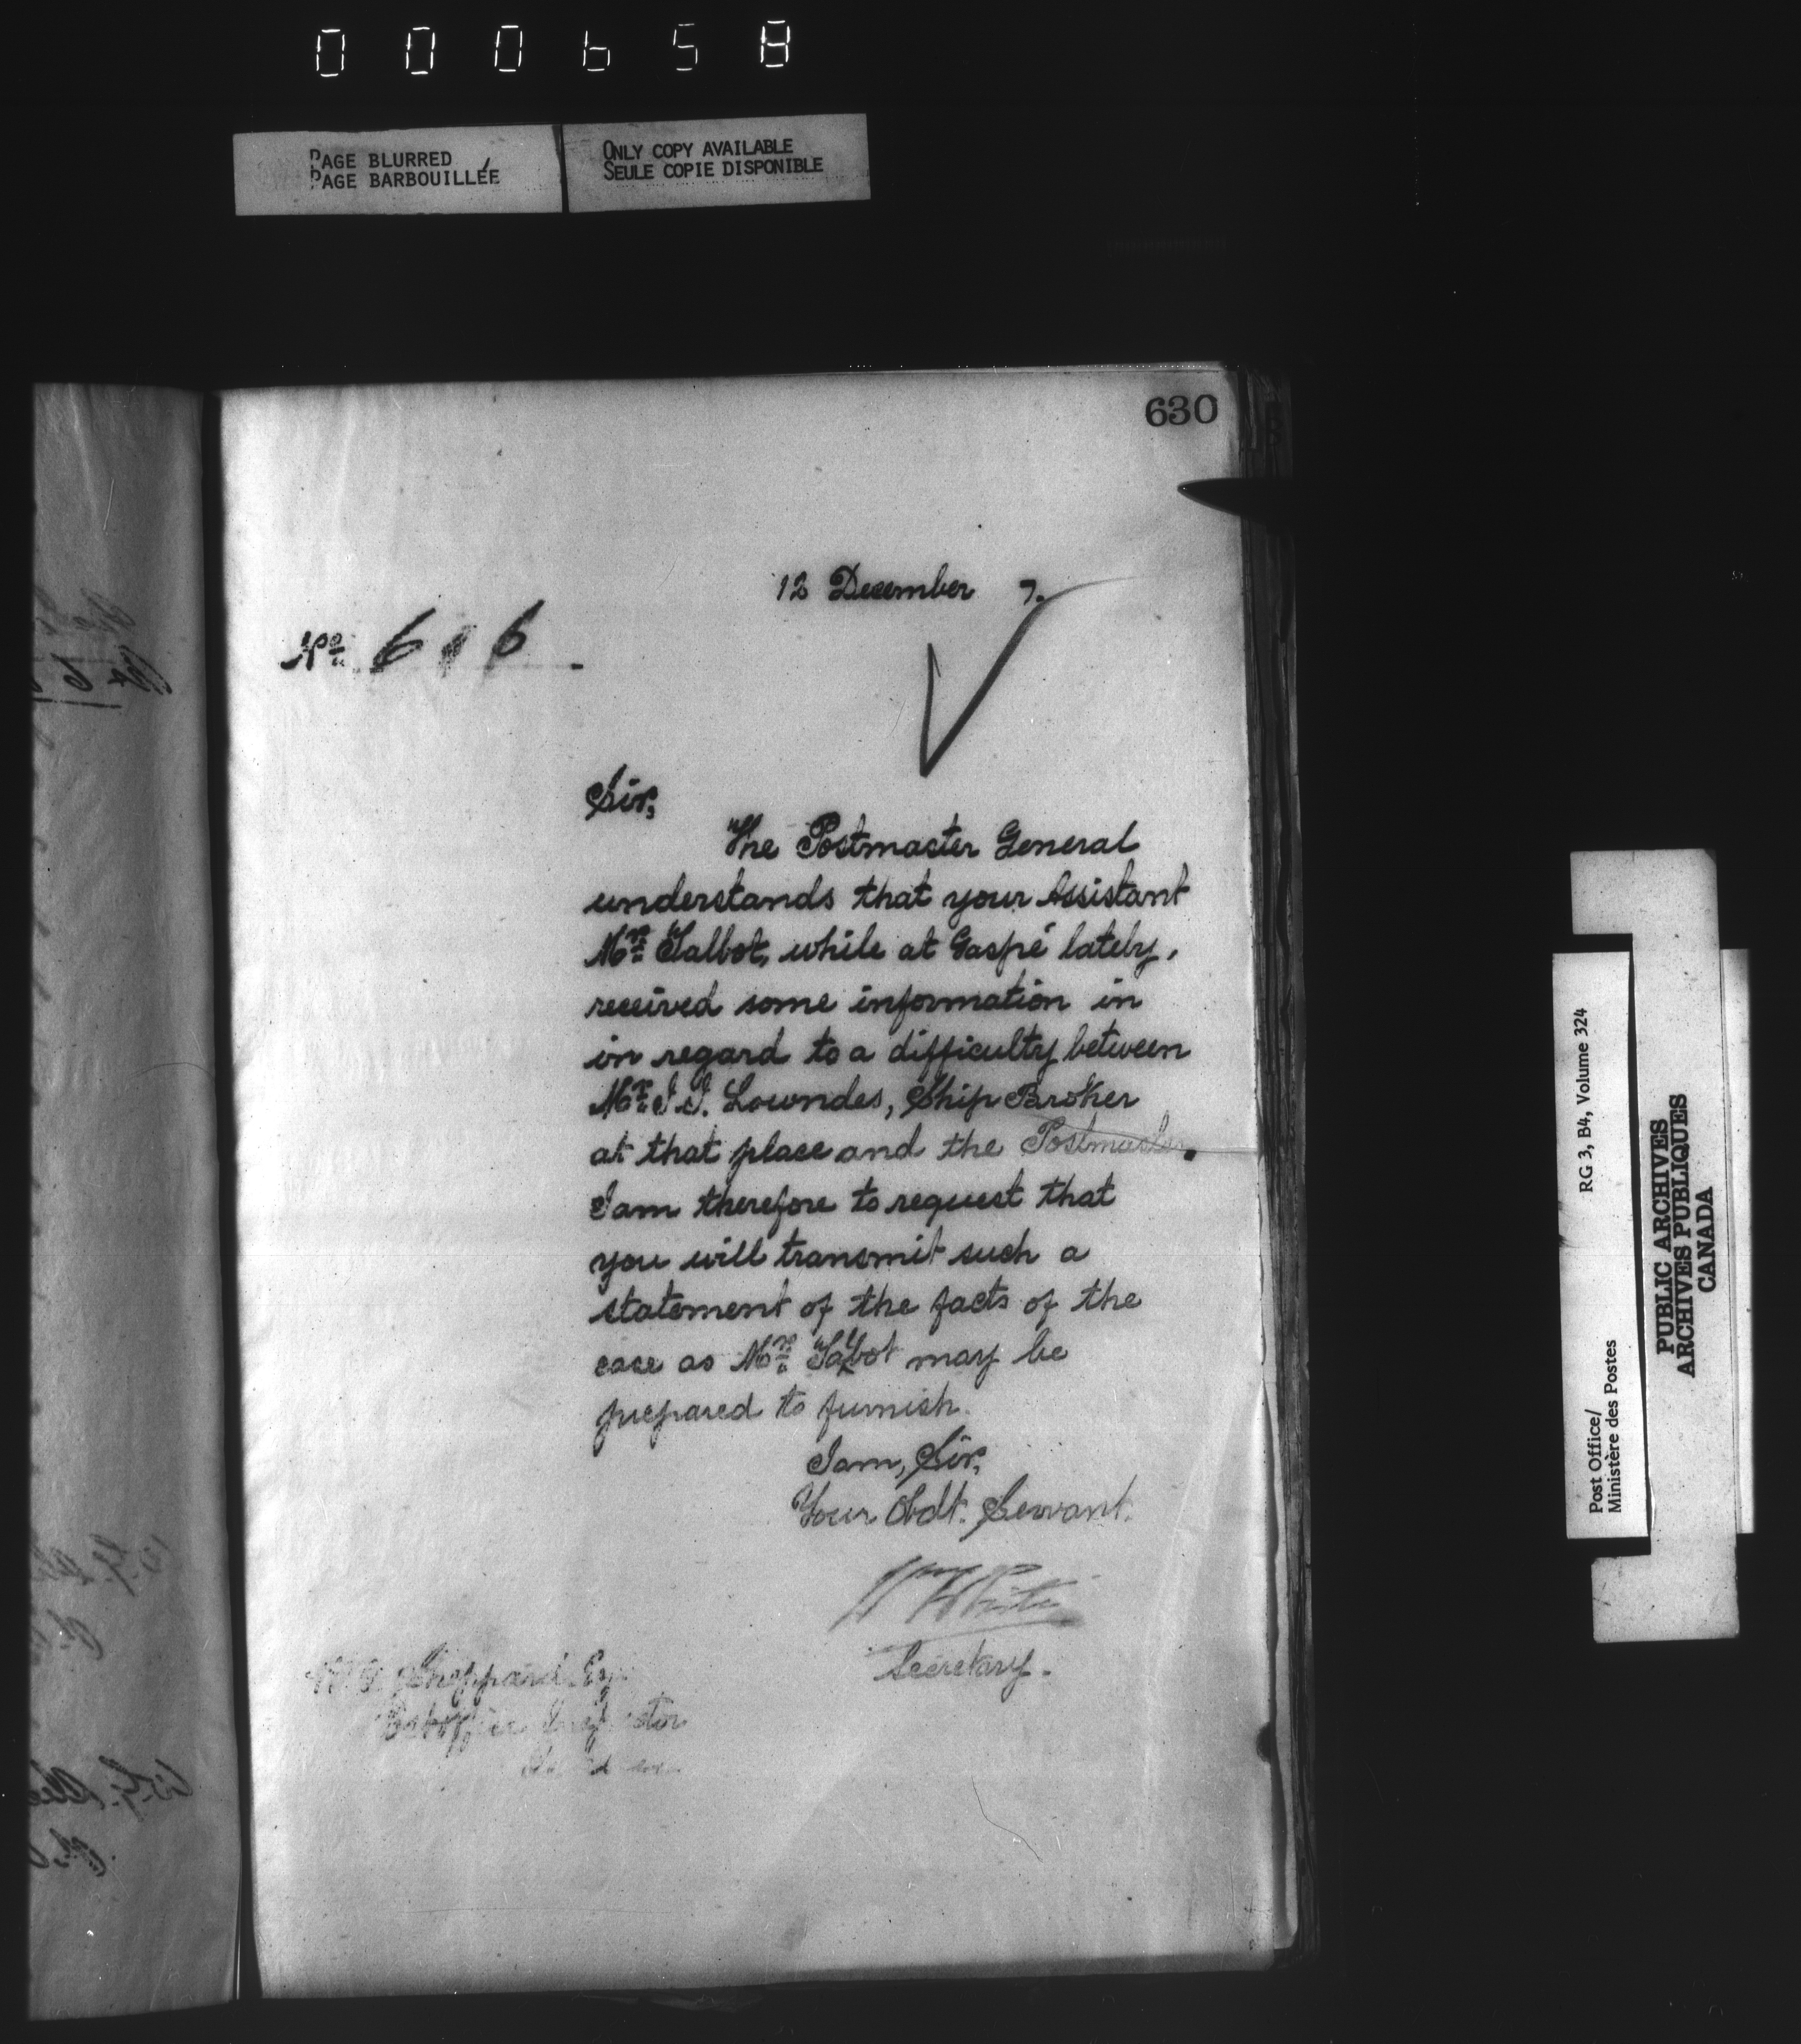 000658
PAGE BLURRED
PAGE BARBOUILLÉE
ONLY COPY AVAILABLE
SEULE COPIE DISPONIBLE
630
12 December 7.
No. 616.
Sir,
The Postmaster General
understands that your Assistant
Mr. Talbot, while at Gaspé lately,
received some information in
in regard to a difficulty between
Mr. J. J. Lowndes, Ship Broker
at that place and the Postmaster.
I am therefore to request that
you will transmit such a
statement of the facts of the
case as Mr. Talbot may be
prepared to furnish.
I am, Sir,
Your Obdt. Servant.
Wm White
Secretary.
Sheppard Esq
Post Office Inspector
RG 3, B4, Volume 324
Post Office/
Ministère des Postes
PUBLIC ARCHIVES
ARCHIVES PUBLIQUES
CANADA